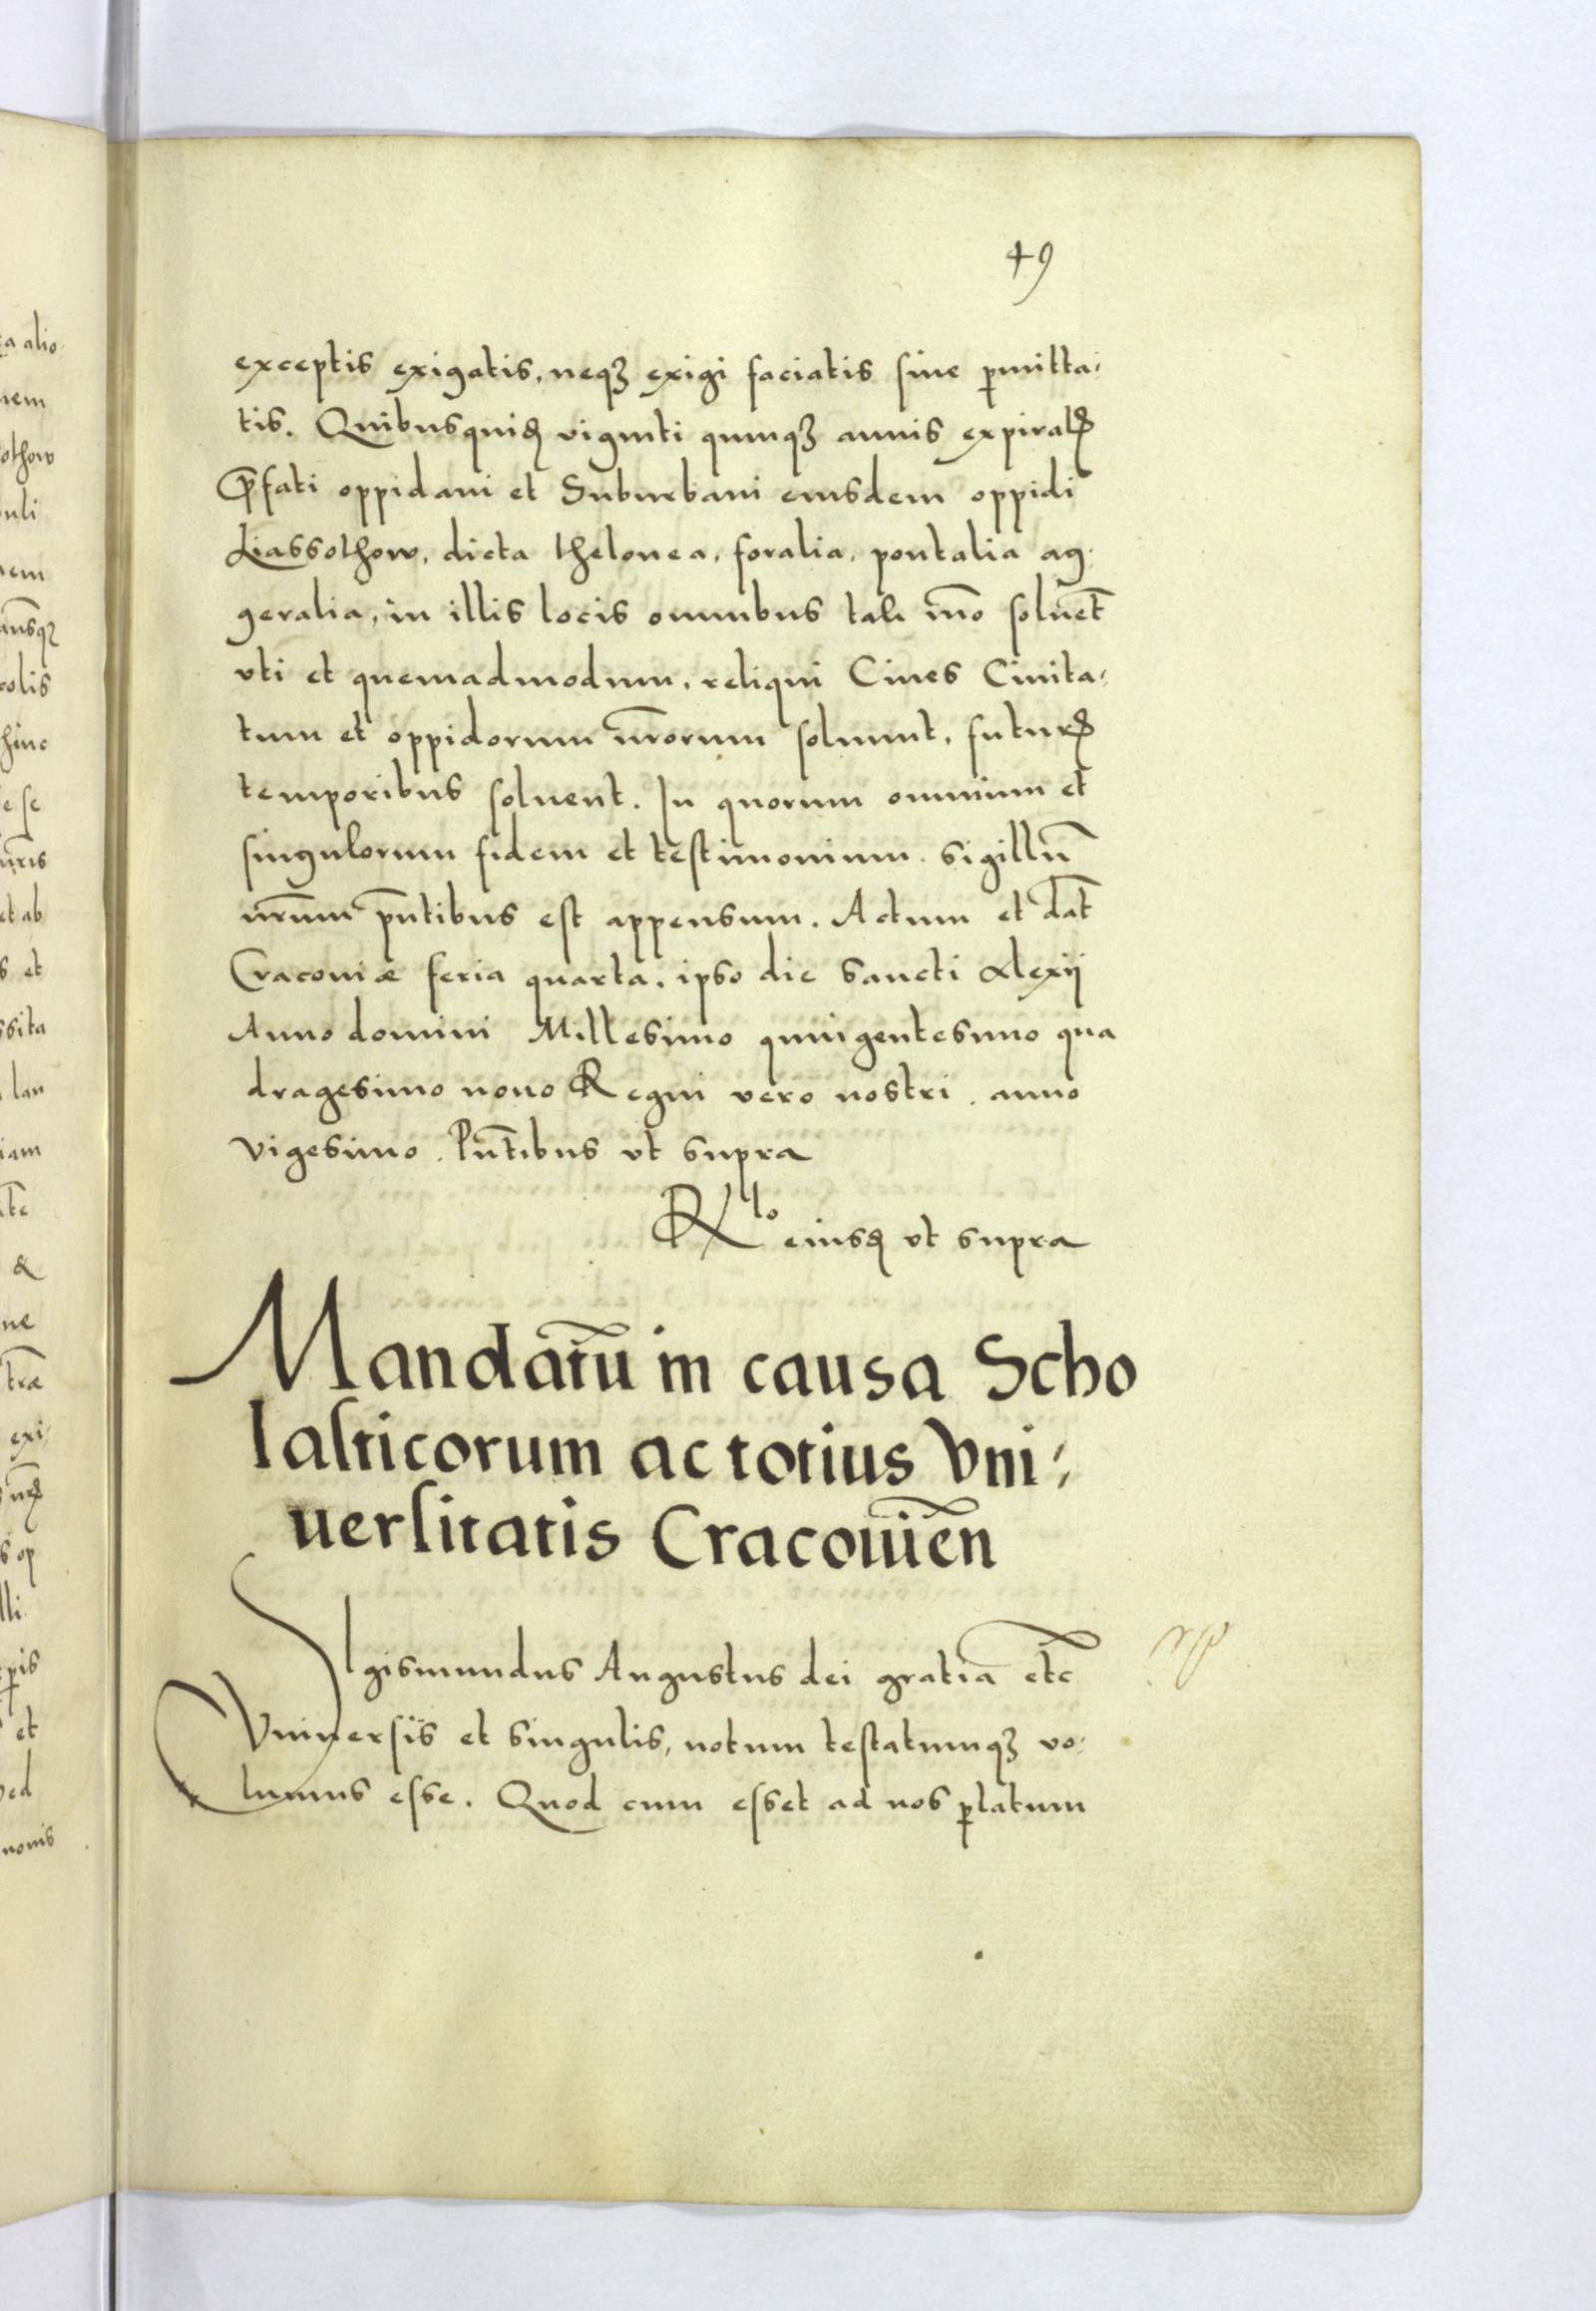 49
exceptis exigatis, neqꝫ exigi faciatis siue ꝑmitta-
tis. Quibusquidꝫ viginti quinqꝫ annis expiratꝭ
p̄fati oppidani et Suburbani eiusdem oppidi
Liassothow, dicta thelonea, foralia, pontalia ag-
geralia, in illis locis omnibus tali mō soluēt
vti et quemadmodum, reliqui Ciues Ciuita-
tum et oppidorum nr̄orum soluunt, futurꝭ
temporibus soluent. In quorum omnium et
singulorum fidem et testimonium. sigillū
nr̄um pn̄tibus est appensum. Actum et dat̄
Cracouiæ feria quarta, ipso die sancti Alexij
Anno domini Millesimo quingentesimo qua
dragesimo nono Regni vero nostri. anno
vigesimo. Pn̄tibus vt supra
Rlo eiusdꝫ vt supra
Mandatū in causa Scho
lasticorum ac totius Vni-
uersitatis Cracouien̄
Sigismundus Augustus dei gratia etc̄
Vniuersis et singulis, notum testatumqꝫ vo-
lumus esse. Quod cum esset ad nos ꝑlatum